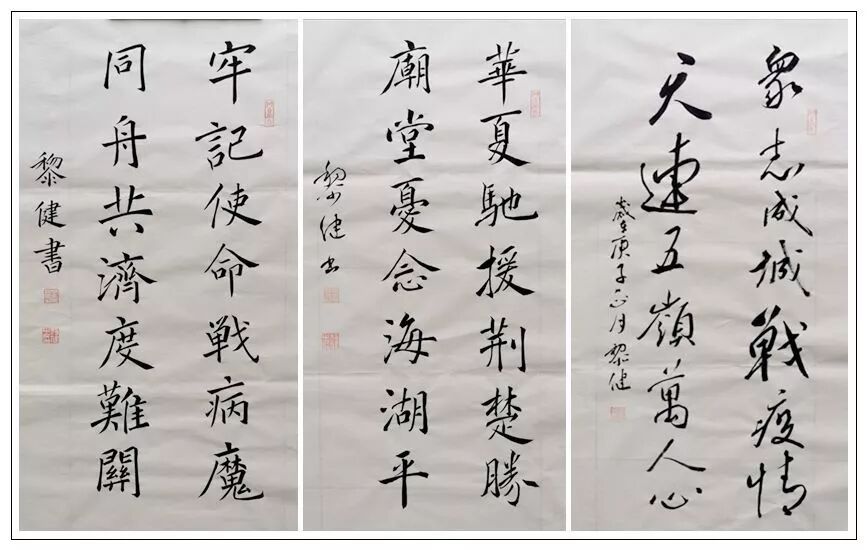 牢記使命戦病魔
同舟共濟度難關
黎健書
華夏馳援荆楚勝
廟堂憂念海湖平
黎健書
衆志成城戦疫情
天連五嶺萬人心
歲在庚子正月黎健